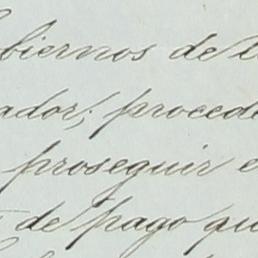 biernos de l
ador; procede
proseguir e
de pago qu